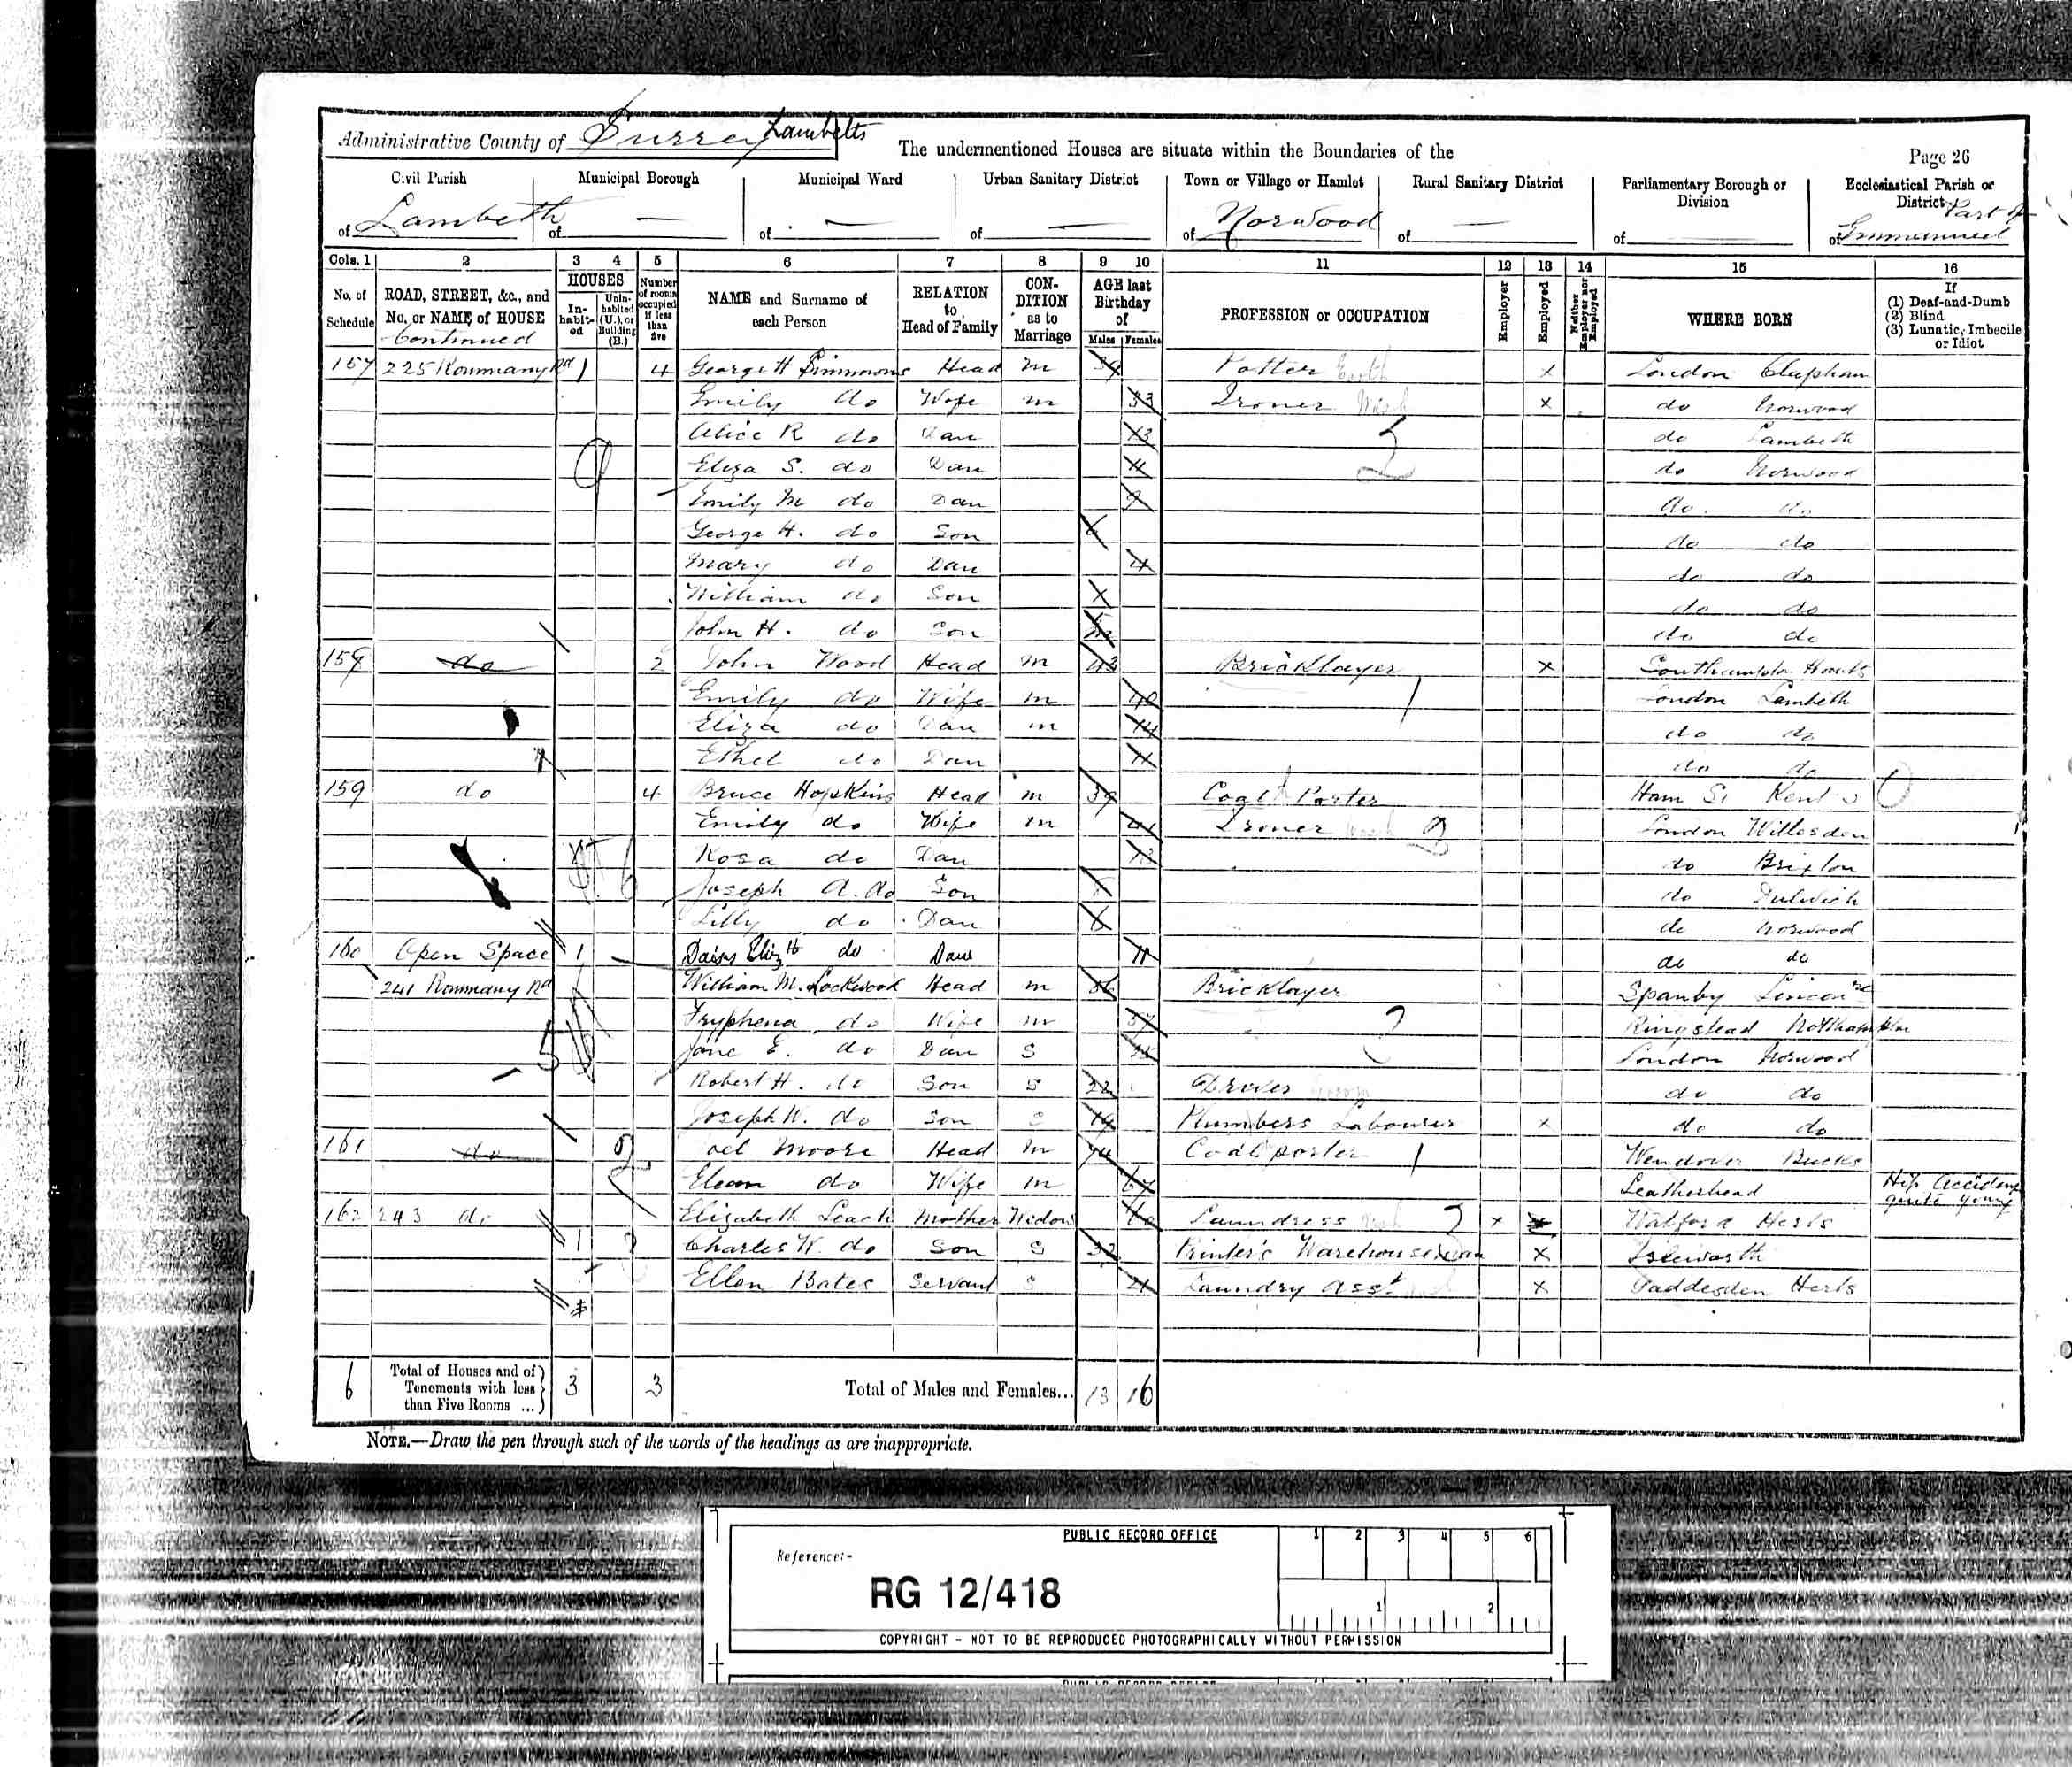 Administrative County of Surrey Lambeth
The undermentioned Houses are situate within the Boundaries of the
Page 26
Civil Parish Municipal Borough Municipal Ward Urban Sanitary District Town or Village or Hamlet Rural Sanitary District Parliamentary Borough or Division Ecclesiastical Parish or District
of Lambeth of — of — of — of Norwood of — of — of Part of Emmanuel
Cols. 1 2 3 4 5 6 7 8 9 10 11 12 13 14 15 16
No. of Schedule ROAD, STREET, &c., and No. or NAME of HOUSE HOUSES In-habit-ed Unin-habited (U.), or Building (B.) Number of rooms occupied if less than five NAME and Surname of each Person RELATION to Head of Family CON-DITION as to Marriage AGE last Birthday of Males Females PROFESSION or OCCUPATION Employer Employed Neither Employer nor Employed WHERE BORN If (1) Deaf-and-Dumb (2) Blind (3) Lunatic, Imbecile or Idiot
Continued
157 225 Rommany Rd 1 4 George H Simmons Head M 39 Potter x London Clapham
Emily do Wife M 33 Ironer x do Norwood
Alice R do Dau 13 do Lambeth
Eliza S. do Dau 11 do Norwood
Emily M do Dau 9 do do
George H. do Son 6 do do
Mary do Dau 4 do do
William do Son do do
John H. do Son do do
158 do 2 John Wood Head M 43 Bricklayer x Southampton Hants
Emily do Wife M 40 London Lambeth
Eliza do Dau M 14 do do
Ethel do Dau 11 do do
159 do 4 Bruce Hopkins Head M 39 Coal Porter Ham St Kent
Emily do Wife M 41 Ironer London Willesden
Rosa do Dau 13 do Brixton
Joseph A. do Son do Dulwich
Lilly do Dau 6 do Norwood
160 Open Space 1 Daisy Elizth do Dau 11 do do
241 Rommany Rd William M. Lockwood Head M 56 Bricklayer Spanby Lincon
Tryphena do Wife M 57 Ringstead Northampton
Jane E. do Dau S London Norwood
Robert H. do Son S 22 Driver do do
Joseph W. do Son S 19 Plumbers Labourer x do do
161 do Joel Moore Head M 74 Coal porter Wendover Bucks
do Wife M 67 Leatherhead Hip Accident quite young
162 243 do 1 Elizabeth Leach Mother Widow 60 Laundress x Watford Herts
Charles W. do Son S 32 Printer's Warehouseman x Isleworth
Ellen Bates Servant S 21 Laundry Asst x Gaddesden Herts
6 Total of Houses and of Tenements with less than Five Rooms ... 3 3 Total of Males and Females... 13 16
NOTE.—Draw the pen through such of the words of the headings as are inappropriate.
PUBLIC RECORD OFFICE 1 2 3 4 5 6
Reference:-
RG 12/418
1 2
COPYRIGHT - NOT TO BE REPRODUCED PHOTOGRAPHICALLY WITHOUT PERMISSION